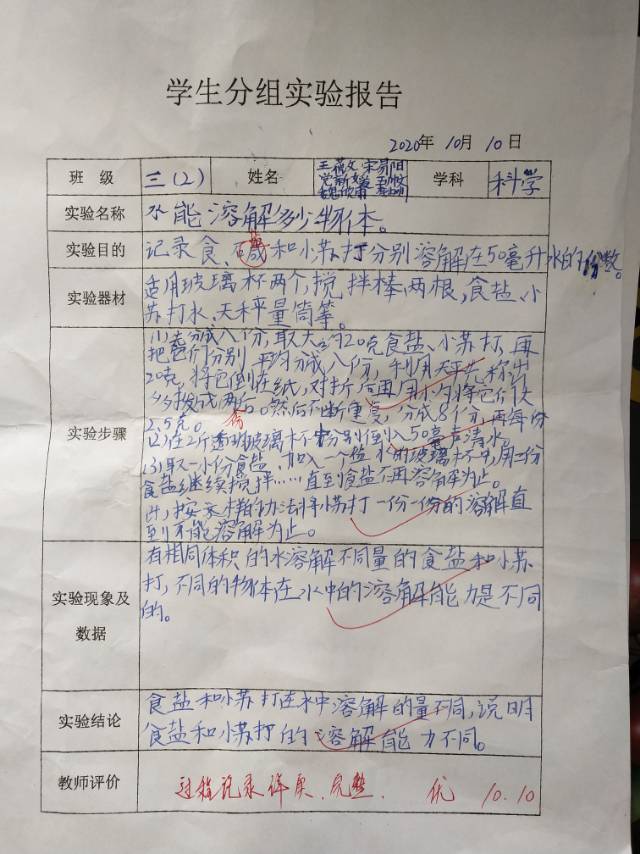 学生分组实验报告
2020年 10月 10日
班 级 三(2) 姓名 学科 科学
实验名称 水能溶解多少物体。
实验目的 记录食盐和小苏打分别溶解在50毫升水的份数。
实验器材 适用玻璃杯两个,搅拌棒两根,食盐、小
苏打水、天秤量筒等。
实验步骤 取大约20克食盐、小苏打,再
把它们分别平均分成八份,利用天平先称出
20克,将它倒在纸,对折后再用小勺将它们快
然后不断重复,分成8个份,再每份
2.5克。
(2)在2个透明玻璃杯中分别倒入50毫升清水
(3)取一小份食盐,加入一个盛水的玻璃杯中,用一份
食盐继续搅拌……直到食盐不再溶解为止。
小苏打一份一份的溶解直
到不能溶解为止。
实验现象及
数据
有相同体积的水溶解不同量的食盐和小苏
打,不同的物体在水中的溶解能力是不同
的。
实验结论 食盐和小苏打在水中溶解的量不同,说明
食盐和小苏打的溶解能力不同。
教师评价 过程记录详实、完整. 优 10.10